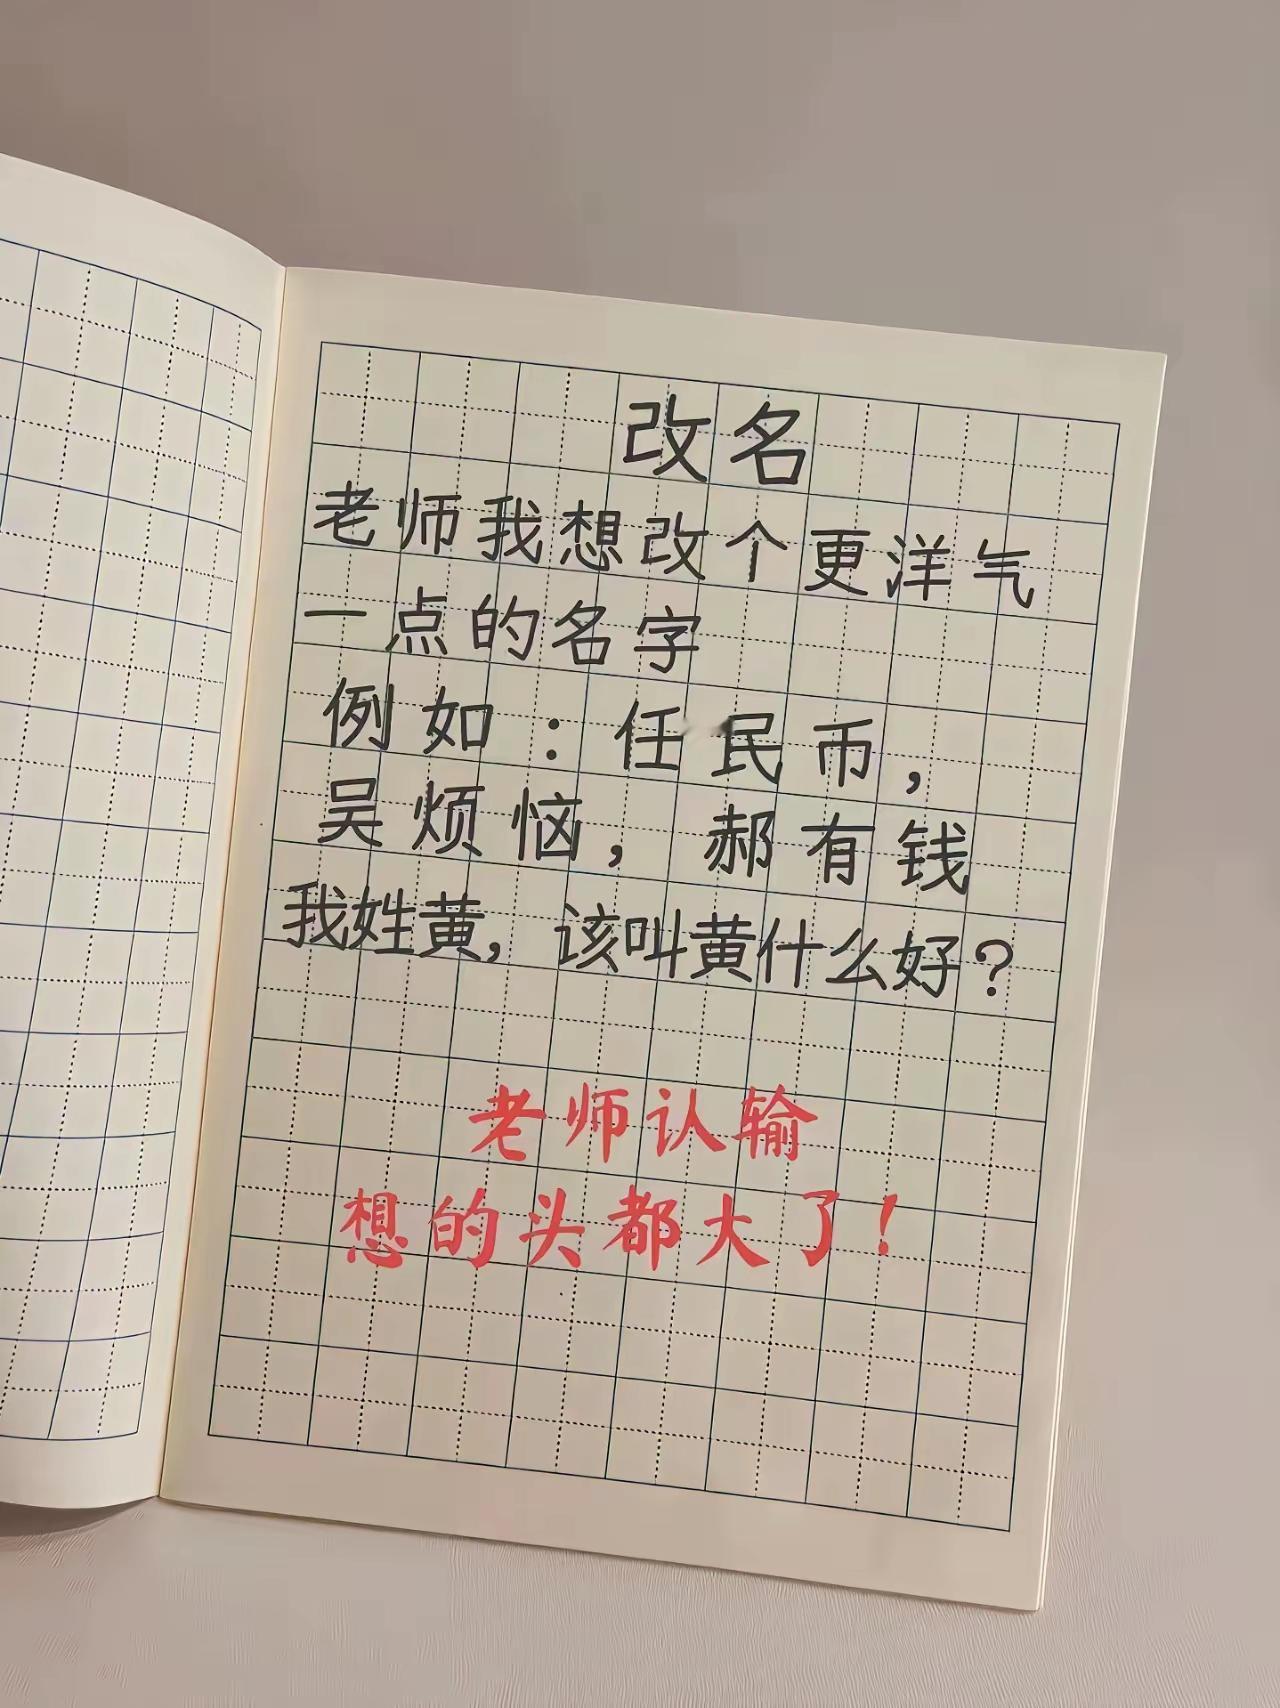 改名
老师我想改个更洋气
一点的名字
例如：任民币，
吴烦恼，郝有钱
我姓黄，该叫黄什么好？
老师认输
想的头都大了！